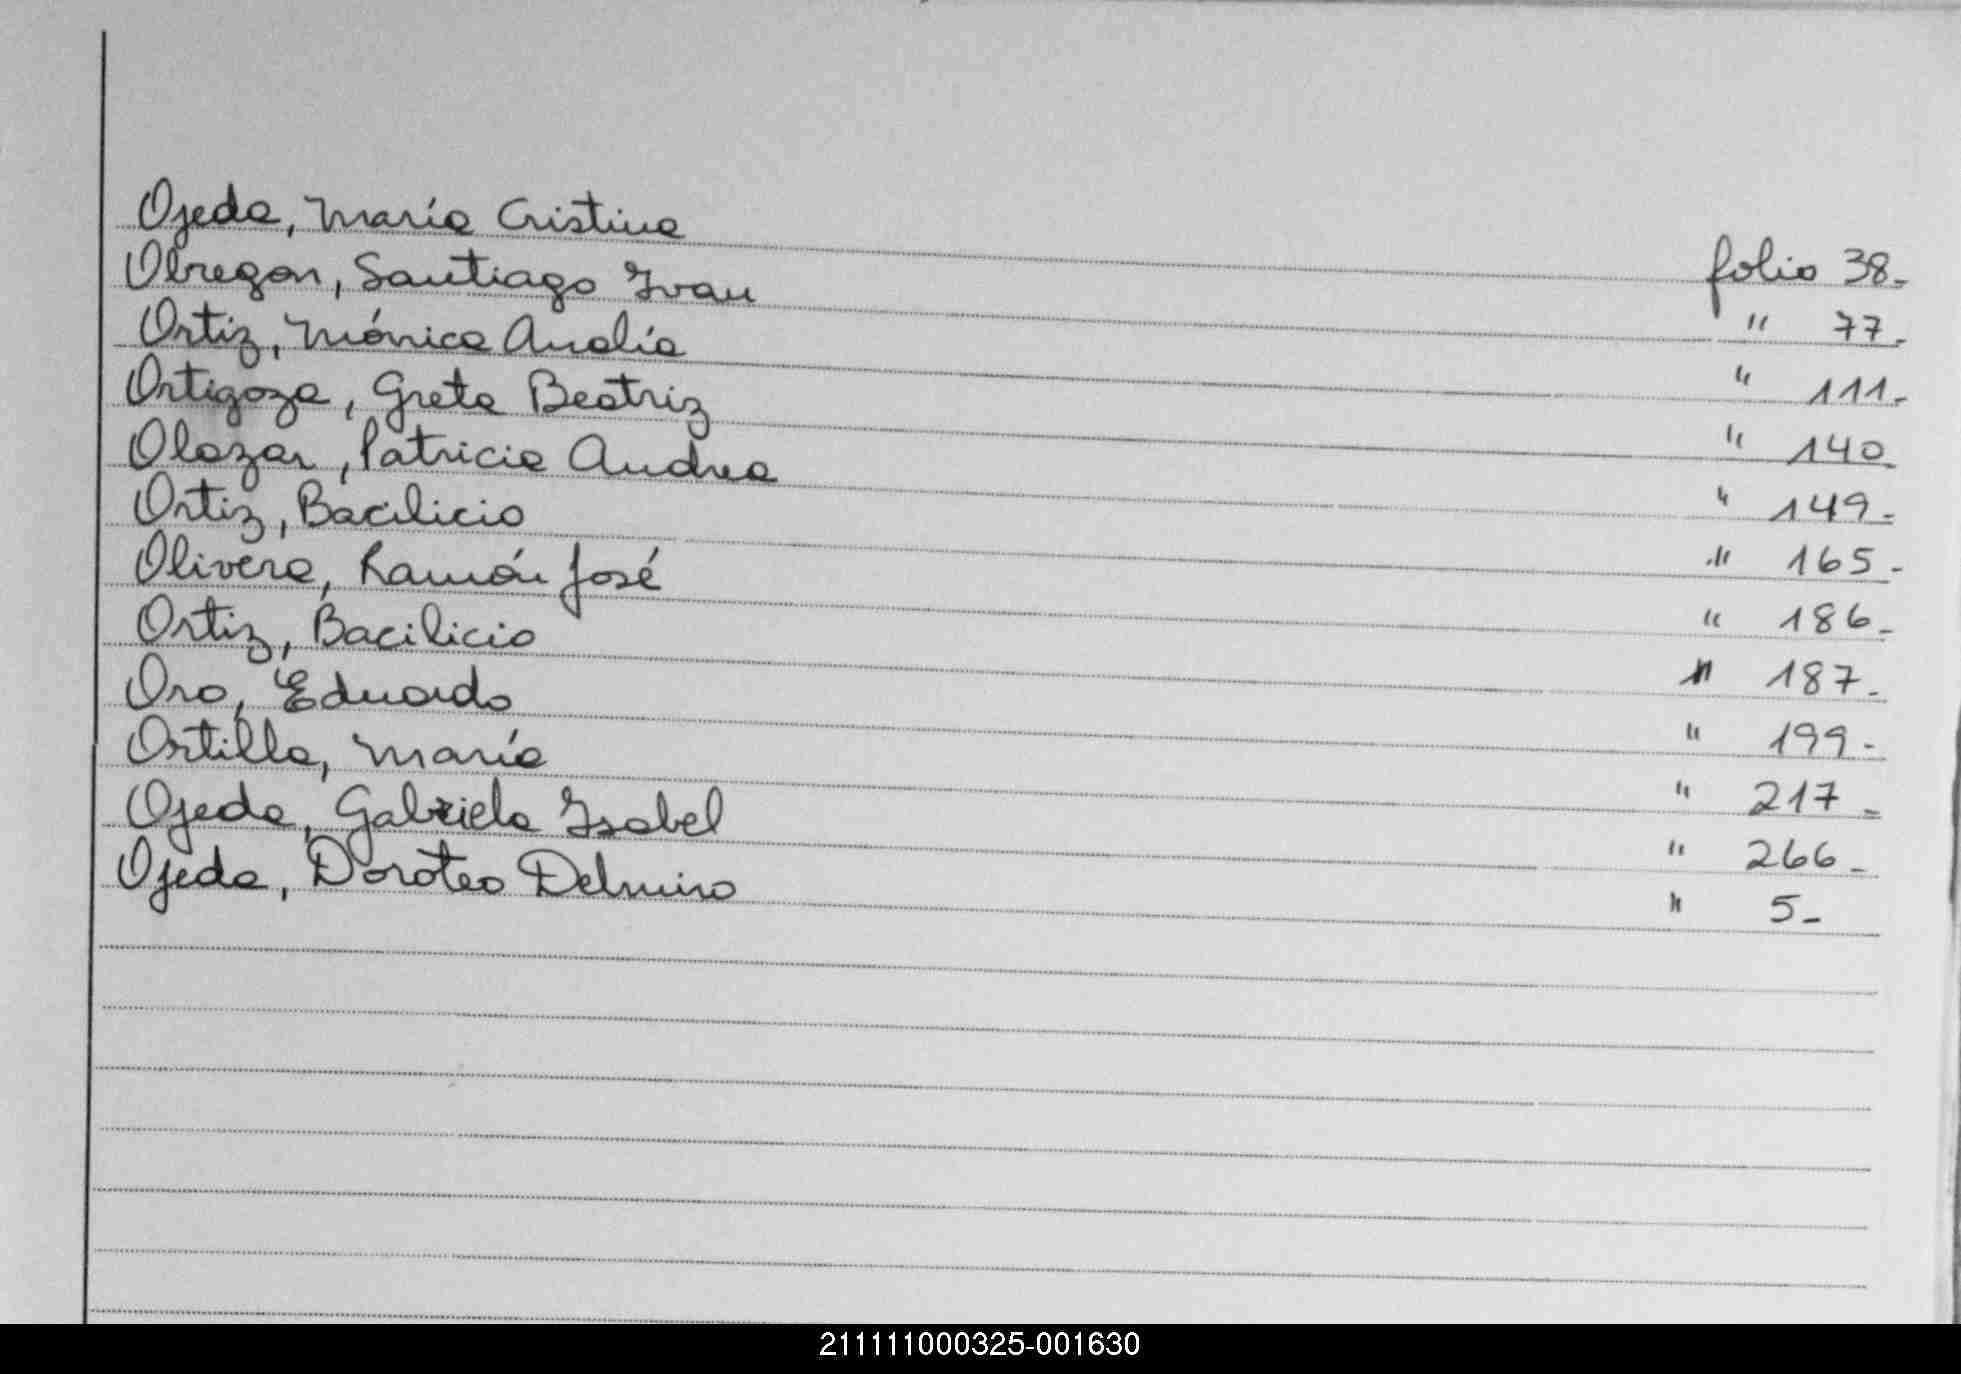 Ojeda, María Cristina folio 38-
Obregon, Santiago Ivan " 77-
Ortiz, Mónica Analía " 111-
Ortigoza, Greta Beatriz " 140-
Olazar, Patricia Andrea " 149-
Ortiz, Bacilicio " 165-
Olivera, Ramón José " 186-
Ortiz, Bacilicio " 187-
Oro, Eduardo " 199-
Ortilla, María " 217-
Ojeda, Gabriela Isabel " 266-
Ojeda, Doroteo Delmiro " 5-
211111000325-001630